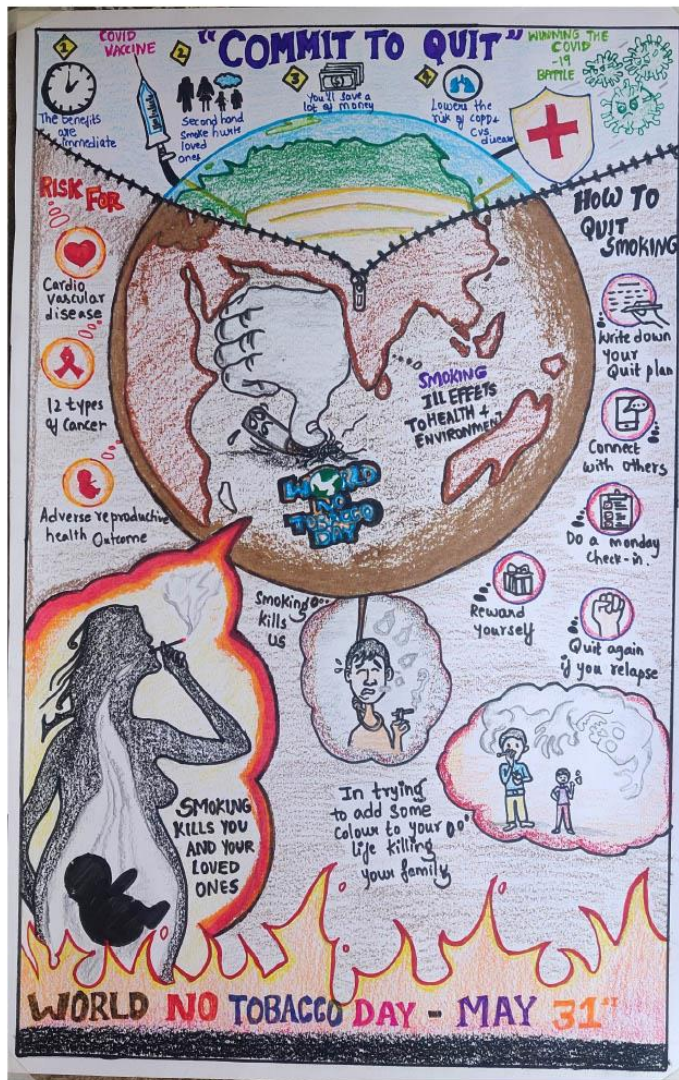 "COMMIT TO QUIT"
1
The benefits
are
immediate
COVID
VACCINE
2
Second hand
smoke hurts
loved
ones
3
You'll save a
lot of money
4
Lowers the
risk of COPD+
CVS
disease
WINNING THE
COVID
-19
BATTLE
RISK FOR
Cardio
vascular
disease
12 types
of Cancer
Adverse reproductive
health Outcome
SMOKING
ILL EFFETS
TO HEALTH +
ENVIRONMENT
WORLD
NO
TOBACCO
DAY
HOW TO
QUIT
SMOKING
Write down
your
Quit plan
Connect
with others
Do a monday
Check-in.
Reward
yourself
Quit again
if you relapse
Smoking
kills
us
SMOKING
KILLS YOU
AND YOUR
LOVED
ONES
In trying
to add some
colour to your
life killing
your family
WORLD NO TOBACCO DAY - MAY 31ST